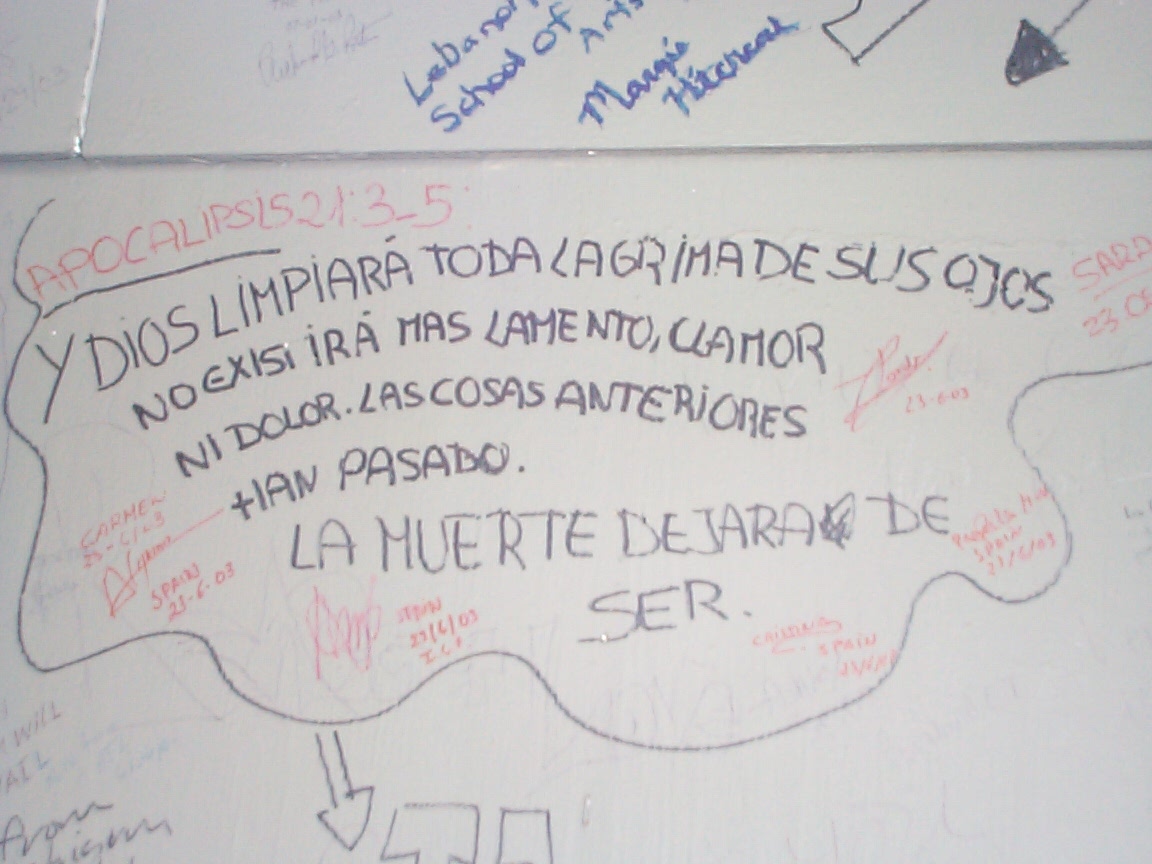 Lebanon
School of Arts
Margie
APOCALIPSIS 21:3_5
Y DIOS LIMPIARÁ TODA LAGRIMA DE SUS OJOS
NO EXISTIRÁ MAS LAMENTO, CLAMOR
NI DOLOR. LAS COSAS ANTERIORES
HAN PASADO.
LA MUERTE DEJARA DE
SER.
SARA
23.0
23-6-03
CARMEN
SPAIN
23-6-03
SPAIN
23/6/03
SPAIN
23/6/03
SPAIN
WILL